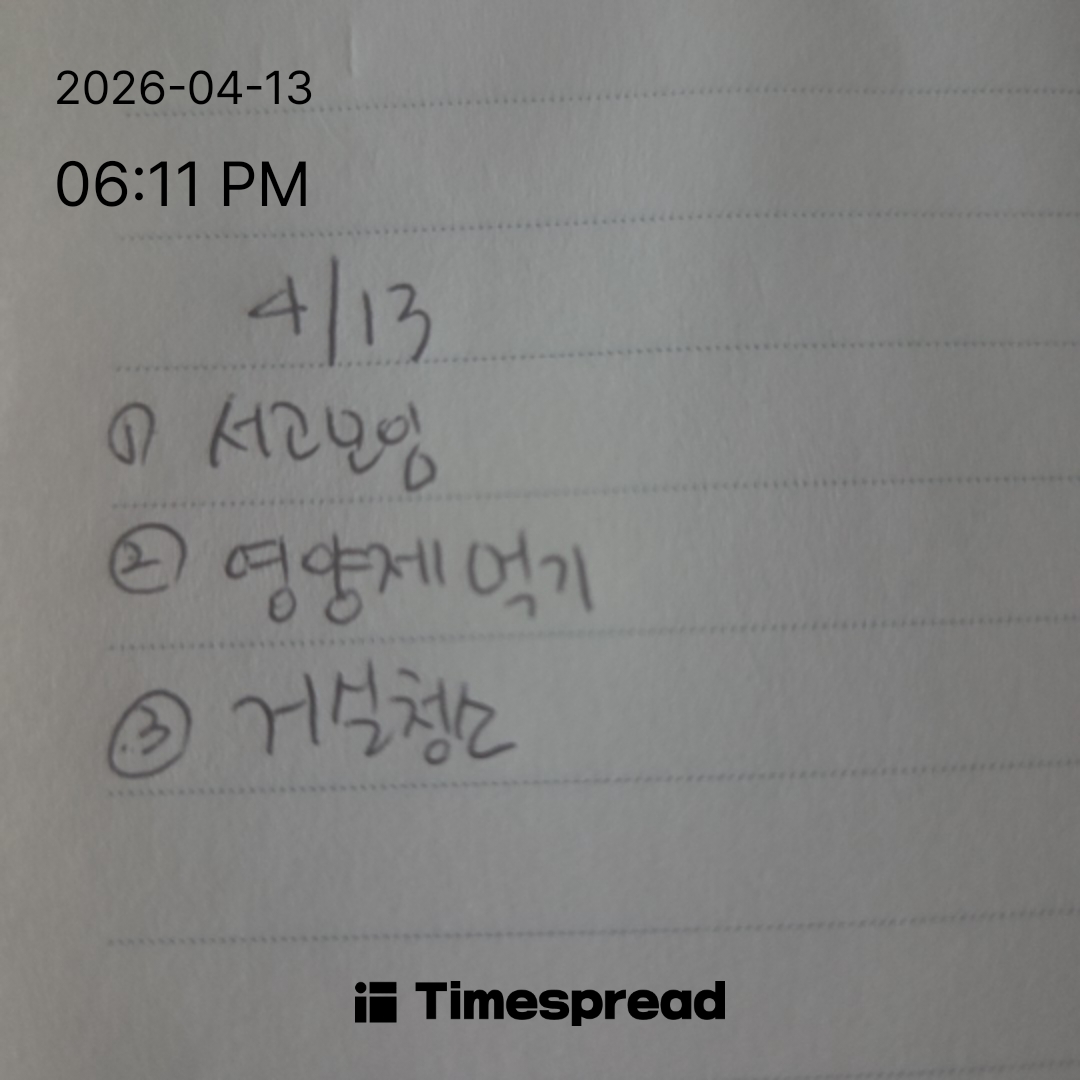 2026-04-13
06:11 PM
4/13
① 서고모임
② 영양제 먹기
③ 거실청소
Timespread